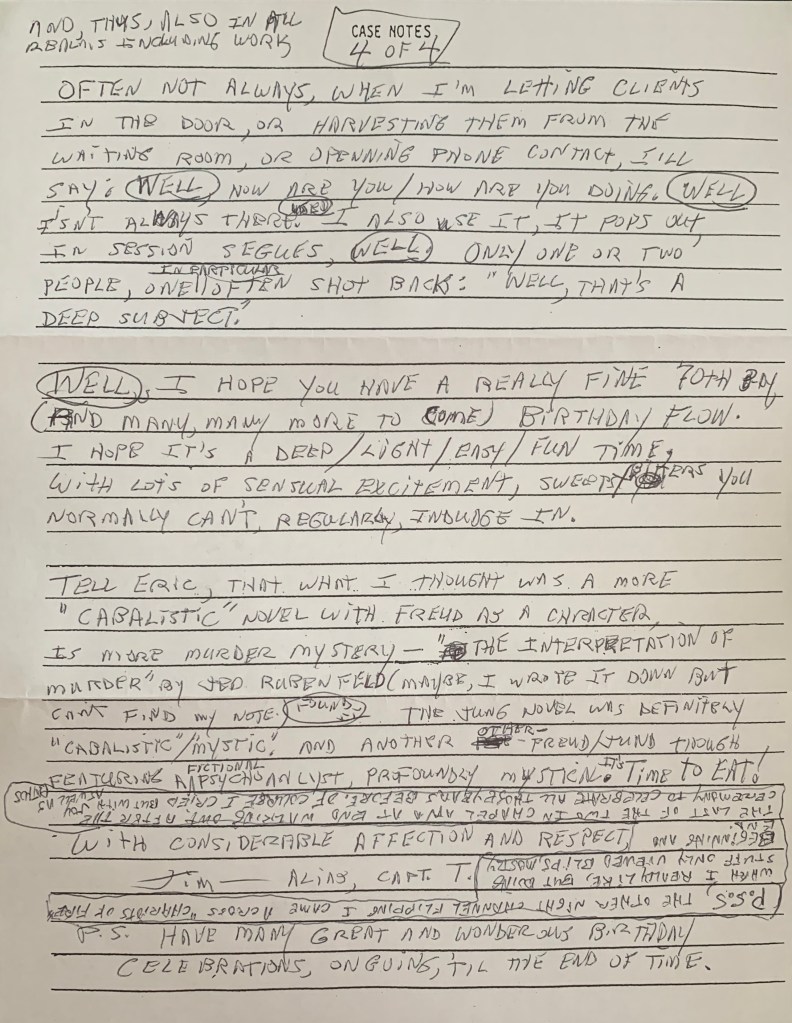 AND, THUS, ALSO IN ALL
REALMS INCLUDING WORK
CASE NOTES
4 OF 4
OFTEN NOT ALWAYS, WHEN I'M LETTING CLIENTS
IN THE DOOR, OR HARVESTING THEM FROM THE
WAITING ROOM, OR OPENNING PHONE CONTACT, I'LL
SAY: WELL, HOW ARE YOU/HOW ARE YOU DOING. WELL
ISN'T ALWAYS THERE. I ALSO USE IT, IT POPS OUT,
USED
IN SESSION SEGUES, WELL, ONLY ONE OR TWO
IN PARTICULAR
PEOPLE, ONE OFTEN SHOT BACK: "WELL, THAT'S A
DEEP SUBJECT."
WELL, I HOPE YOU HAVE A REALLY FINE 70TH BDY
(AND MANY, MANY MORE TO COME) BIRTHDAY FLOW.
I HOPE IT'S A DEEP/LIGHT/EASY/FUN TIME,
WITH LOTS OF SENSUAL EXCITEMENT, SWEETS/ YOU
NORMALLY CAN'T, REGULARLY, INDULGE IN.
TELL ERIC, THAT WHAT I THOUGHT WAS A MORE
"CABALISTIC" NOVEL WITH FREUD AS A CHRACTER,
IS MORE MURDER MYSTERY — "THE INTERPRETATION OF
MURDER" BY JED RUBENFELD (MAYBE, I WROTE IT DOWN BUT
CAN'T FIND MY NOTE. FOUND IT THE JUNG NOVEL WAS DEFINITELY
"CABALISTIC"/MYSTIC. AND ANOTHER OTHER- -FREUD/JUND THOUGH
FICTIONAL
FEATURING A PSYCHOANLYST, PROFOUNDLY MYSTICK. IT'S TIME TO EAT!
WITH CONSIDERABLE AFFECTION AND RESPECT,
JIM — ALIAS, CAPT. T.
P.S. HAVE MANY GREAT AND WONDEROUS BIRTHDAY
CELEBRATIONS, ONGOING, 'TIL THE END OF TIME.
P.S.S. THE OTHER NIGHT CHANNEL FLIPPING I CAME ACROSS "CHARIOTS OF FIRE"
WHICH I REALLY LIKE, BUT DOING
STUFF ONLY VIEWED BLIPS, MOSTLY
BEGINNING AND END.
THE LAST OF THE TWO IN CHAPEL AND AT END WALKING OUT AFTER THE
CEREMONY TO CELEBRATE ALL THOSE YEARS BEFORE. OF COURSE I CRIED BUT WITH YOU
AS WELL AS